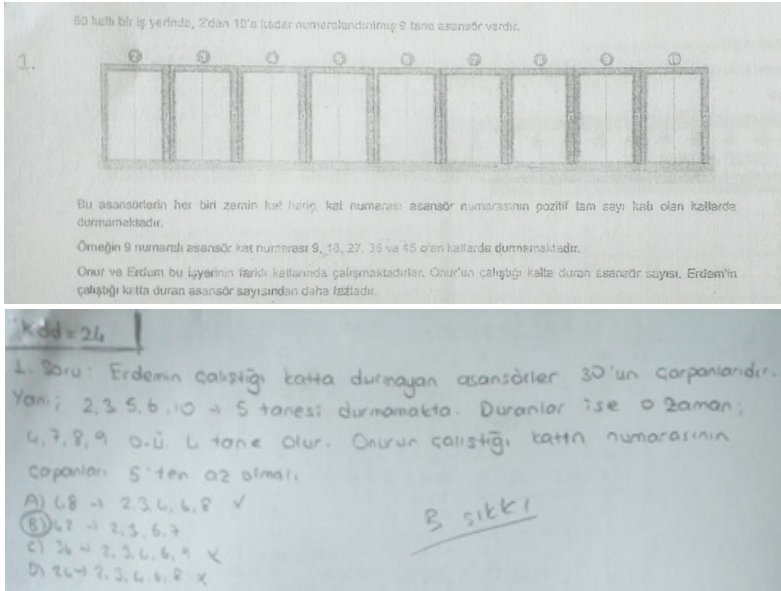 50 katlı bir iş yerinde, 2'den 10'a kadar numaralandırılmış 9 tane asansör vardır.
1.
2 3 4 5 6 7 8 9 10
Bu asansörlerin her biri zemin kat hariç, kat numarası asansör numarasının pozitif tam sayı katı olan katlarda
durmamaktadır.
Örneğin 9 numaralı asansör kat numarası 9, 18, 27, 36 ve 45 olan katlarda durmamaktadır.
Onur ve Erdem bu işyerinin farklı katlarında çalışmaktadırlar. Onur'un çalıştığı katta duran asansör sayısı, Erdem'in
çalıştığı katta duran asansör sayısından daha fazladır.
kdd = 24
1. Soru: Erdemin çalıştığı katta durmayan asansörler 30'un çarpanlarıdır.
Yani; 2,3,5,6,10 → 5 tanesi durmamakta. Duranlar ise o zaman;
4,7,8,9 4 tane olur. Onurun çalıştığı katın numarasının
çarpanları 5'ten az olmalı.
A) 48 → 2,3,4,6,8 x
B) 42 → 2,3,6,7
C) 36 → 2,3,4,6,9 x
D) 24 → 2,3,4,6,8 x
B şıkkı